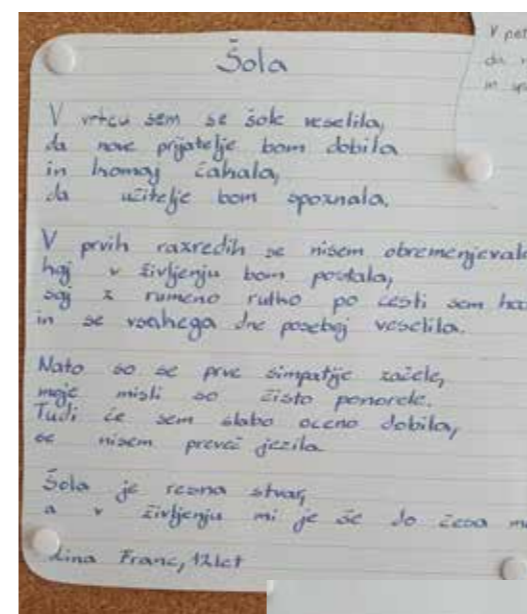 Šola
V vrtcu sem se šole veselila,
da nove prijatelje bom dobila
in komaj čakala,
da učitelje bom spoznala.
V prvih razredih se nisem obremenjevala
kaj v življenju bom postala,
saj z rumeno rutko po cesti sem
in se vsakega dne posebej veselila.
Nato so se prve simpatije začele,
moje misli so čisto ponorele.
Tudi če sem slabo oceno dobila,
se nisem preveč jezila.
Šola je resna stvar,
a v življenju mi je še do česa
Franc, 12 let
V pet
da
in